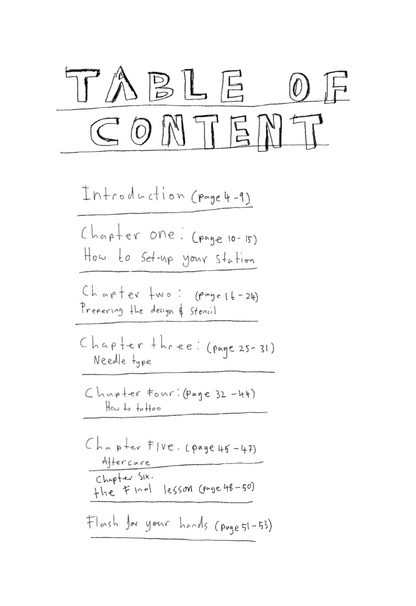 TABLE OF
CONTENT
Introduction (page 4-9)
Chapter one: (page 10-15)
How to set-up your station
Chapter two: (page 16-24)
Preparing the design & stencil
Chapter three: (page 25-31)
Needle type
Chapter Four: (page 32-44)
How to tattoo
Chapter Five. (page 45-47)
Aftercare
Chapter Six.
the Final lesson (page 48-50)
Flash for your hands (page 51-53)